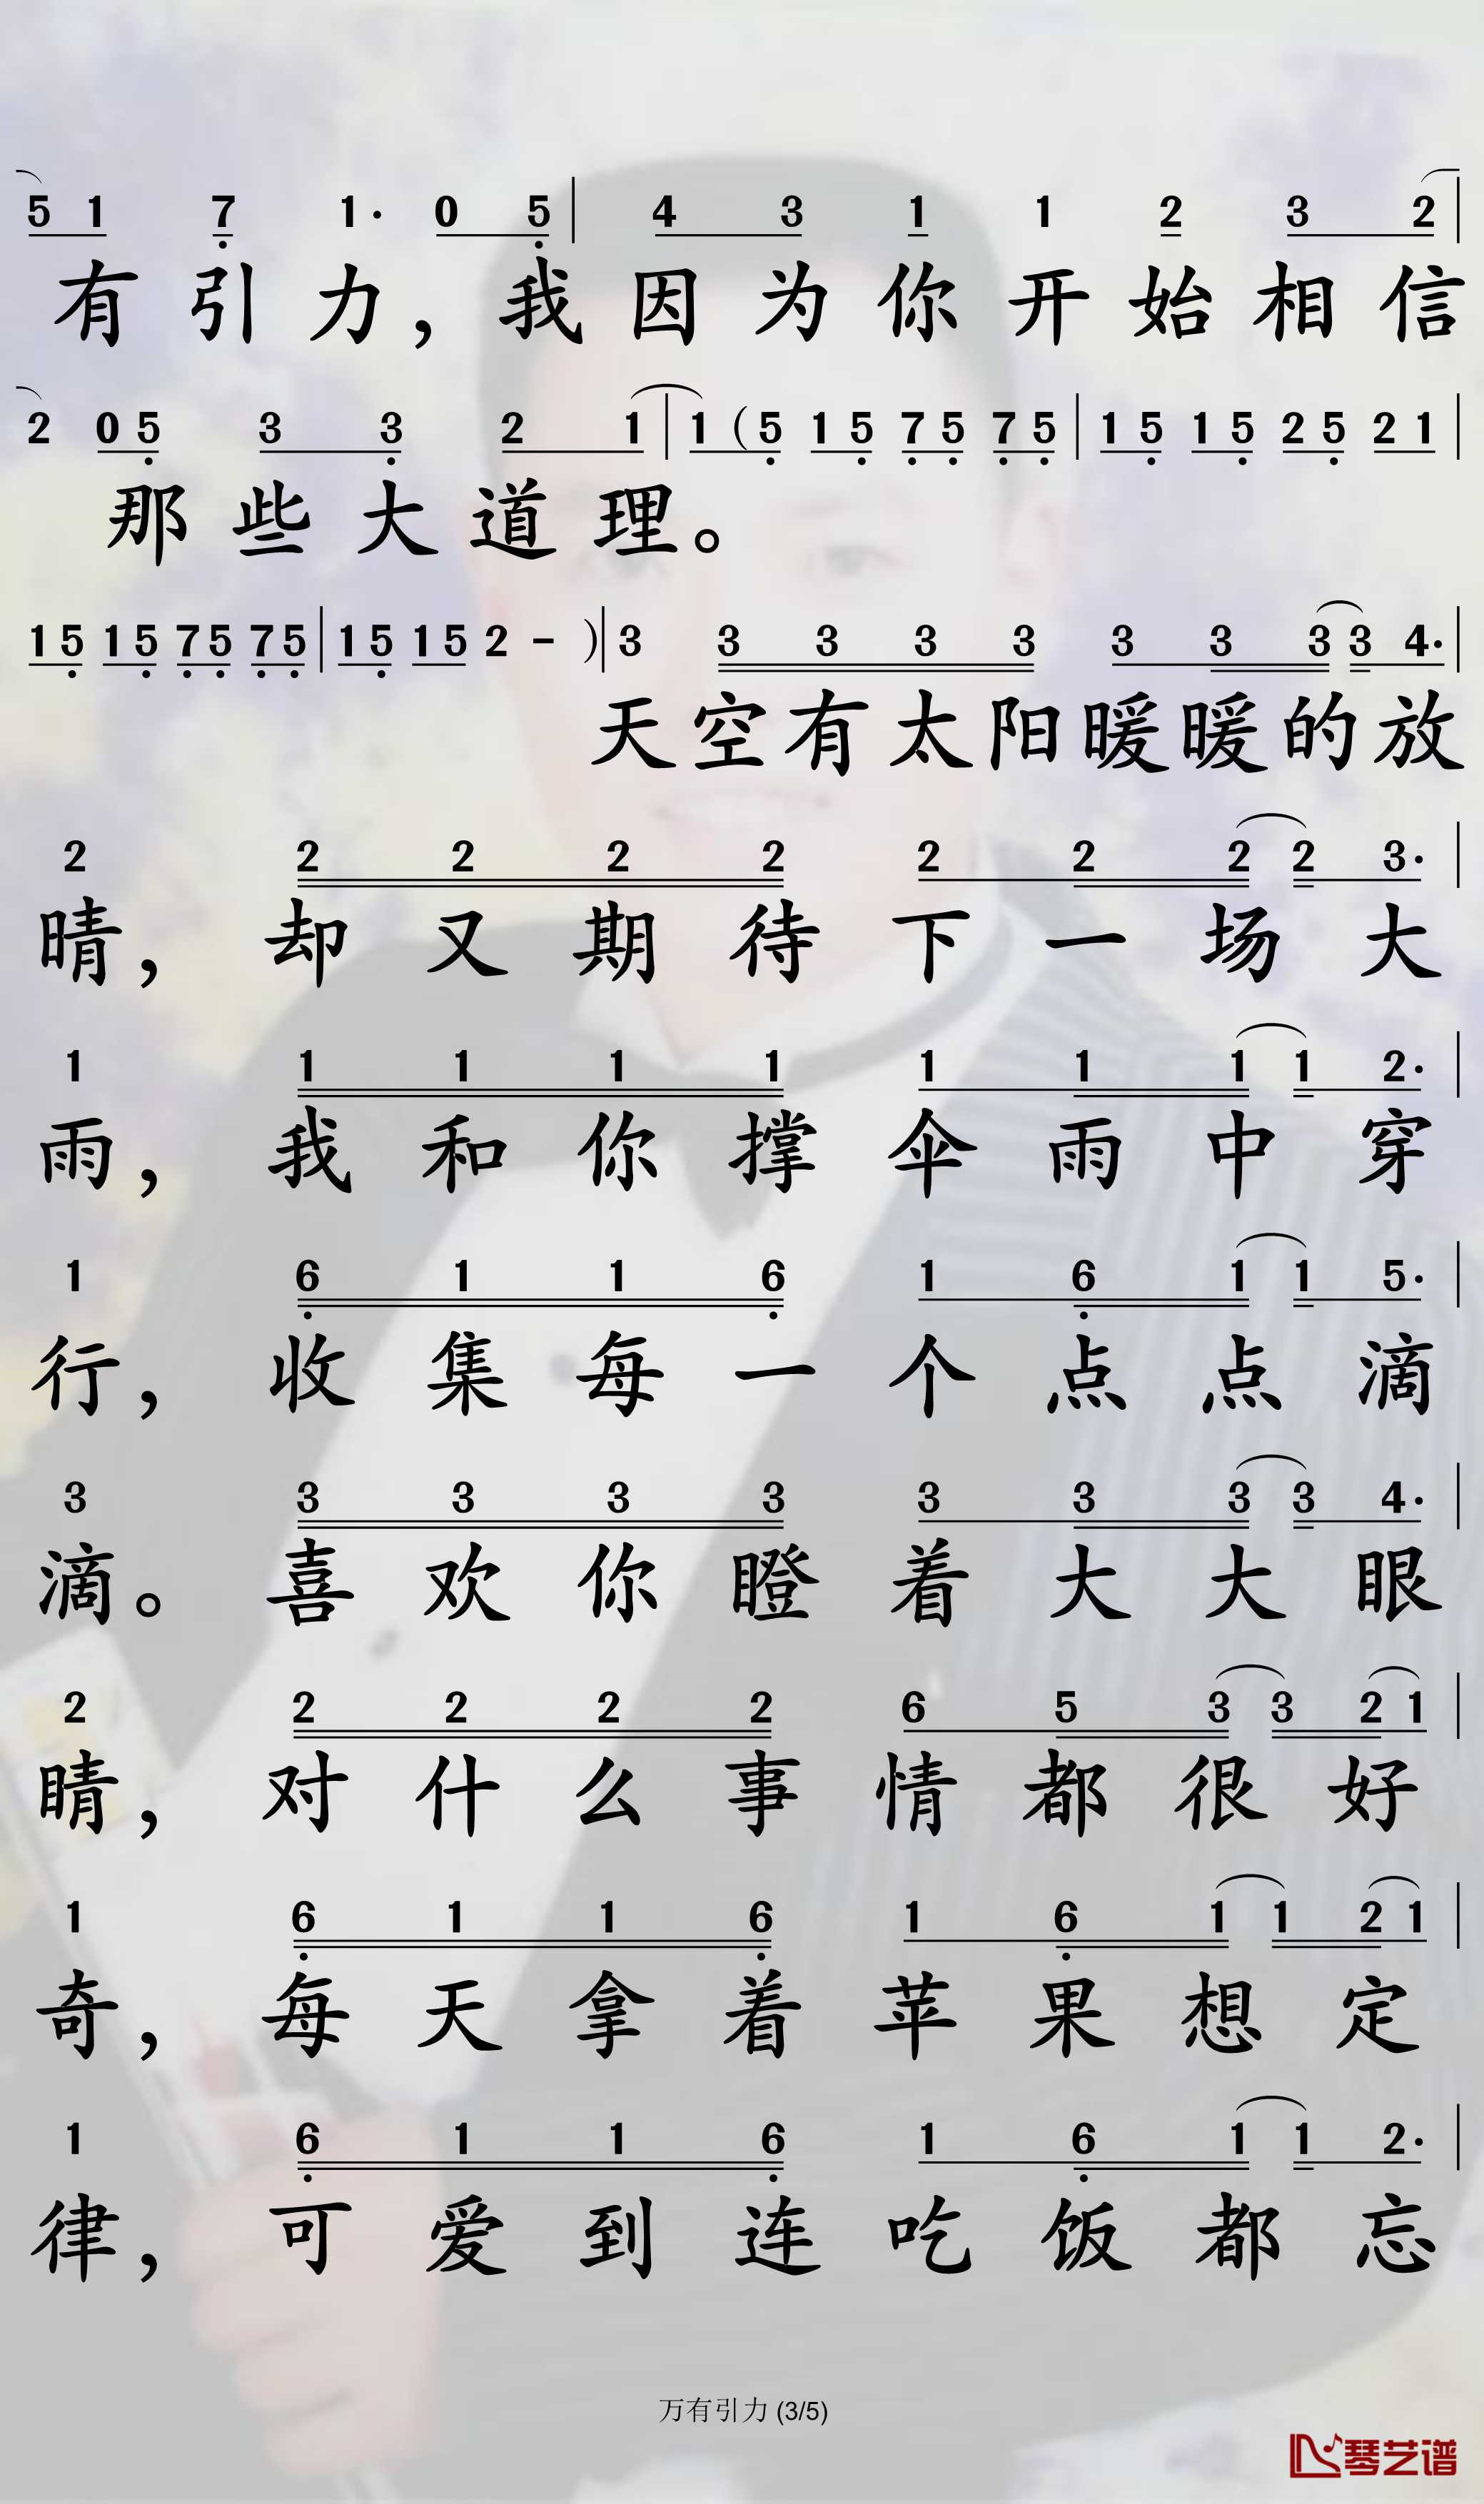 5 1 7 1· 0 5 | 4 3 1 1 2 3 2 |
有引力，我因为你开始相信
2 0 5 3 3 2 1 | 1 ( 5 1 5 7 5 7 5 | 1 5 1 5 2 5 2 1 |
那些大道理。
1 5 1 5 7 5 7 5 | 1 5 1 5 2 - ) | 3 3 3 3 3 3 3 3 3 4· |
天空有太阳暖暖的放
2 2 2 2 2 2 2 2 2 3· |
晴，却又期待下一场大
1 1 1 1 1 1 1 1 1 2· |
雨，我和你撑伞雨中穿
1 6 1 1 6 1 6 1 1 5· |
行，收集每一个点点滴
3 3 3 3 3 3 3 3 3 4· |
滴。喜欢你瞪着大大眼
2 2 2 2 2 6 5 3 3 2 1 |
睛，对什么事情都很好
1 6 1 1 6 1 6 1 1 2 1 |
奇，每天拿着苹果想定
1 6 1 1 6 1 6 1 1 2· |
律，可爱到连吃饭都忘
万有引力 (3/5)
琴艺谱